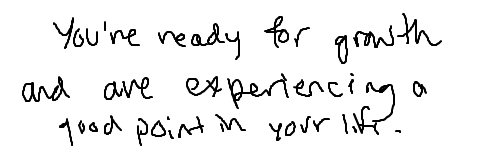 You're ready for growth
and are experiencing a
good point in your life.